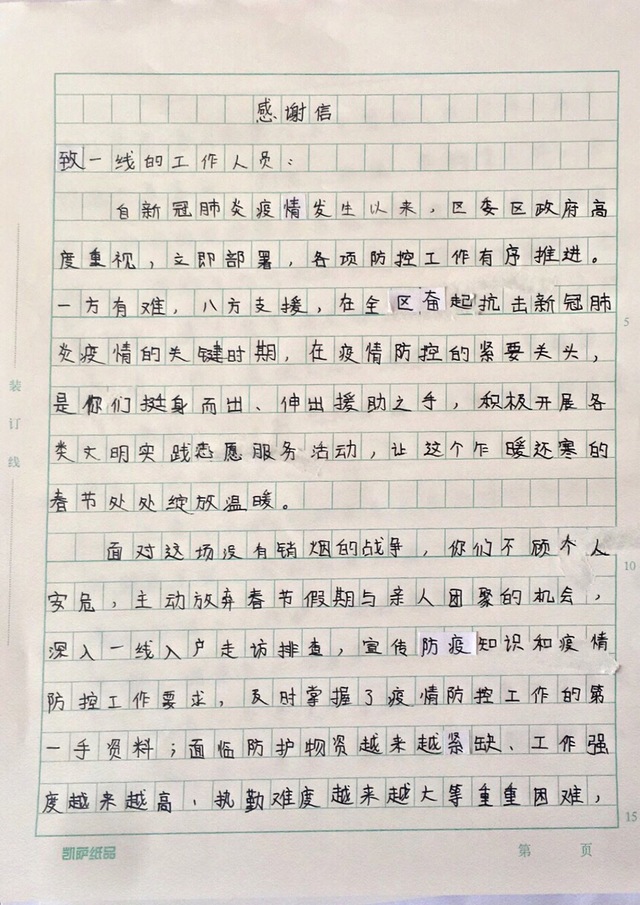 感谢信
致一线的工作人员：
自新冠肺炎疫情发生以来，区委区政府高
度重视，立即部署，各项防控工作有序推进。
一方有难，八方支援，在全区奋起抗击新冠肺
炎疫情的关键时期，在疫情防控的紧要关头，
是你们挺身而出、伸出援助之手，积极开展各
类文明实践志愿服务活动，让这个乍暖还寒的
春节处处绽放温暖。
面对这场没有销烟的战争，你们不顾个人
安危，主动放弃春节假期与亲人团聚的机会，
深入一线入户走访排查，宣传防疫知识和疫情
防控工作要求，及时掌握了疫情防控工作的第
一手资料；面临防护物资越来越紧缺、工作强
度越来越高、执勤难度越来越大等重重困难，
5
10
15
装订线
凯萨纸品
第 页